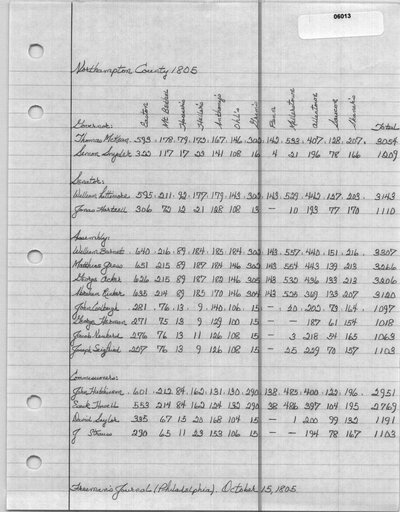 06013
Northampton County 1805
Easton Mt. Bethel Hartel's Heller's Anthony's Ohl's
Governor: Total
Thomas McKean 593 178 79 172 167 146 302 142 533 407 128 207 3054
Simon Snyder 322 117 17 23 141 108 16 4 21 196 78 166 1209
Senator:
William Lattimore 595 211 92 177 179 143 302 143 529 412 157 203 3143
Jonas Hartzell 306 72 12 21 128 108 13 — 10 193 77 170 1110
Assembly:
William Barnet 640 216 89 184 185 184 302 143 557 440 151 216 3307
Matthias Gress 651 215 89 187 184 146 302 143 554 443 139 213 3266
George Acker 626 215 89 187 182 146 305 143 530 436 133 213 3206
Abraham Rinker 635 214 89 185 170 146 304 143 525 369 133 207 3120
John Coolbaugh 281 76 13 9 140 106 15 — 20 202 73 164 1097
George Harman 271 75 13 9 129 100 15 — — 187 61 154 1018
Jacob Newhard 276 76 13 11 126 108 15 — 3 218 54 165 1063
Joseph Seigfried 257 76 13 9 126 108 15 — 25 229 70 157 1103
Commissioner:
John Hutchinson 601 212 84 162 131 130 290 138 485 400 122 196 2951
Isaac Howell 553 214 84 162 124 132 290 38 486 397 104 195 2769
David Saylor 335 67 13 20 168 104 15 — 1 200 99 132 1191
J Strauss 290 65 11 23 153 106 15 — — 194 78 167 1103
Freemen's Journal (Philadelphia). October 15, 1805